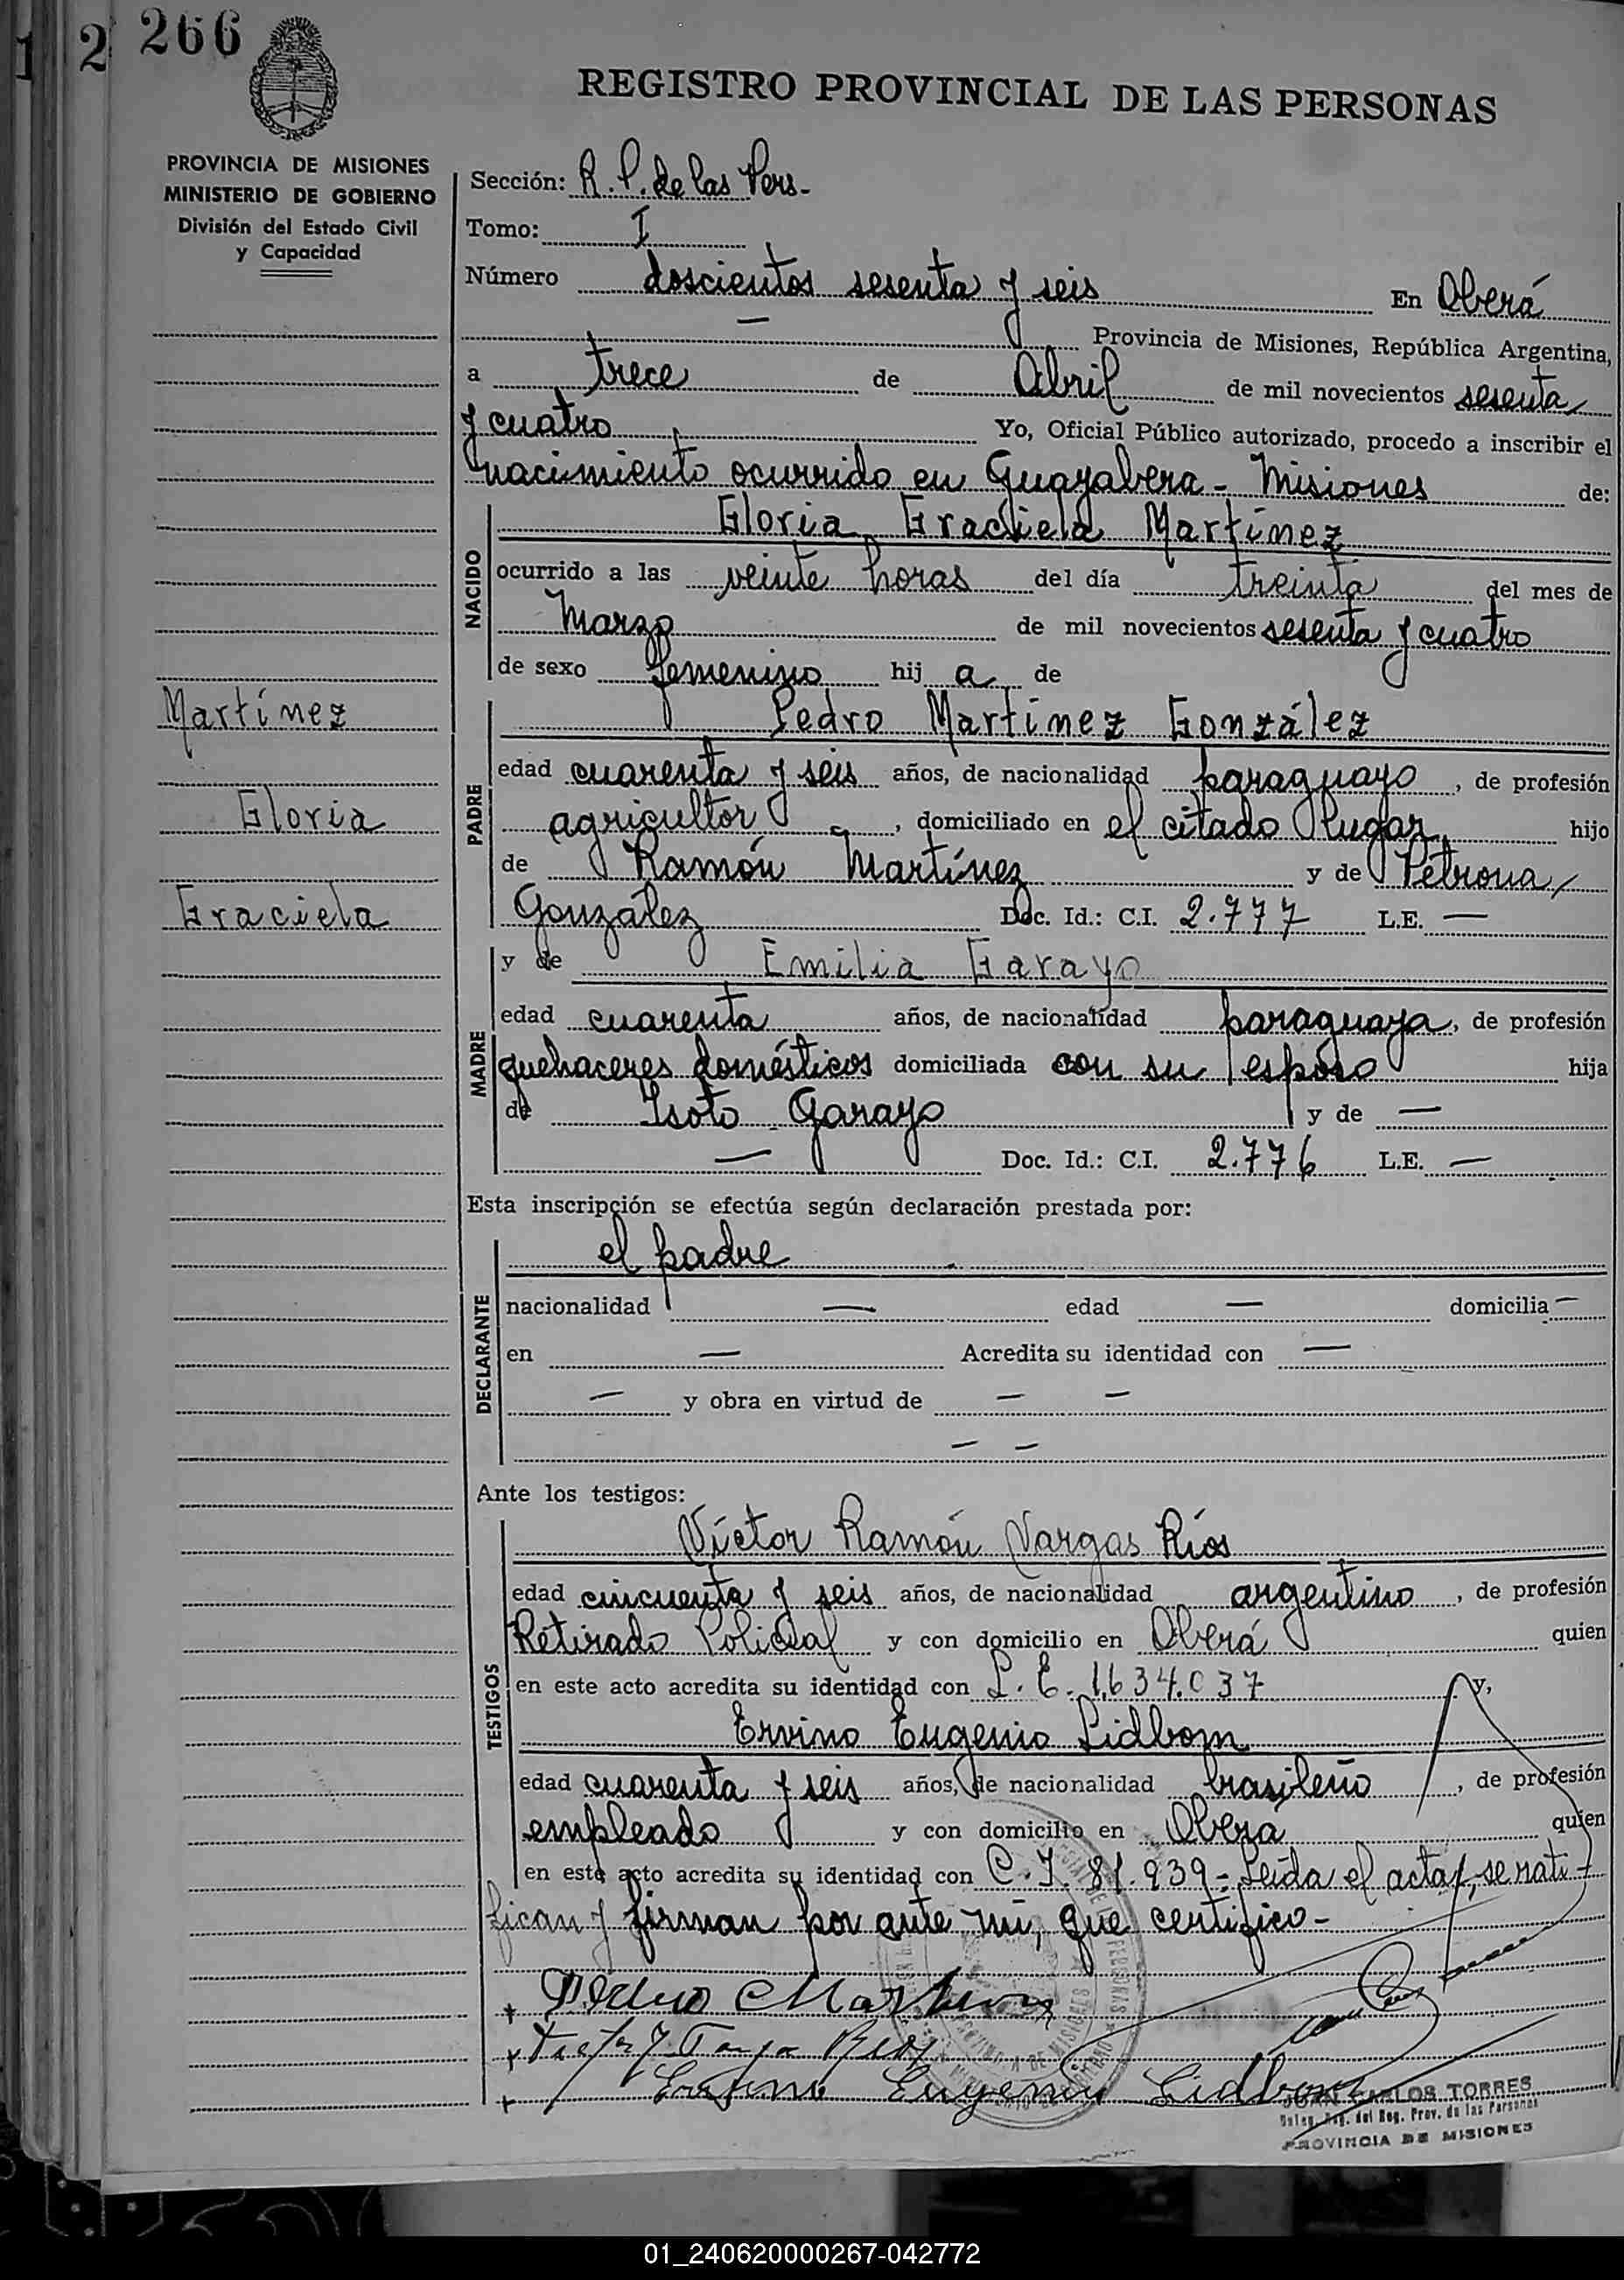 1 2 266
REGISTRO PROVINCIAL DE LAS PERSONAS
PROVINCIA DE MISIONES
MINISTERIO DE GOBIERNO
División del Estado Civil
y Capacidad
Martínez
Gloria
Graciela
Sección: R.P. de las Pers-
Tomo: I
Número doscientos sesenta y seis En Oberá
— Provincia de Misiones, República Argentina,
a trece de Abril de mil novecientos sesenta
y cuatro Yo, Oficial Público autorizado, procedo a inscribir el
nacimiento ocurrido en Guayabera - Misiones de:
NACIDO
Gloria Graciela Martínez
ocurrido a las veinte horas del día treinta del mes de
Marzo de mil novecientos sesenta y cuatro
de sexo femenino hij a de
PADRE
Pedro Martínez González
edad cuarenta y seis años, de nacionalidad paraguayo, de profesión
agricultor -, domiciliado en el citado lugar hijo
de Ramón Martínez y de Petrona
González Doc. Id.: C.I. 2.777 L.E. —
MADRE
y de Emilia Garayo
edad cuarenta años, de nacionalidad paraguaya, de profesión
quehaceres domésticos domiciliada con su esposo hija
de Isoto Garayo y de —
— Doc. Id.: C.I. 2.776 L.E. —
Esta inscripción se efectúa según declaración prestada por:
DECLARANTE
el padre
nacionalidad — edad — domicilia —
en — Acredita su identidad con —
— y obra en virtud de — —
— —
Ante los testigos:
TESTIGOS
Víctor Ramón Vargas Ríos
edad cincuenta y seis años, de nacionalidad argentino, de profesión
Retirado Policial y con domicilio en Oberá quien
en este acto acredita su identidad con L.E. 1.634.037 y,
Ervino Eugenio Lidbom
edad cuarenta y seis años, de nacionalidad brasileño, de profesión
empleado y con domicilio en Oberá quien
en este acto acredita su identidad con C.I. 81.939 - Leída el acta, se rati-
fican y firman por ante mí, que certifico-
Pedro Martinez
Eugenio Lidbom
JUAN CARLOS TORRES
Deleg. Reg. del Reg. Prov. de las Personas
PROVINCIA DE MISIONES
01_240620000267-042772